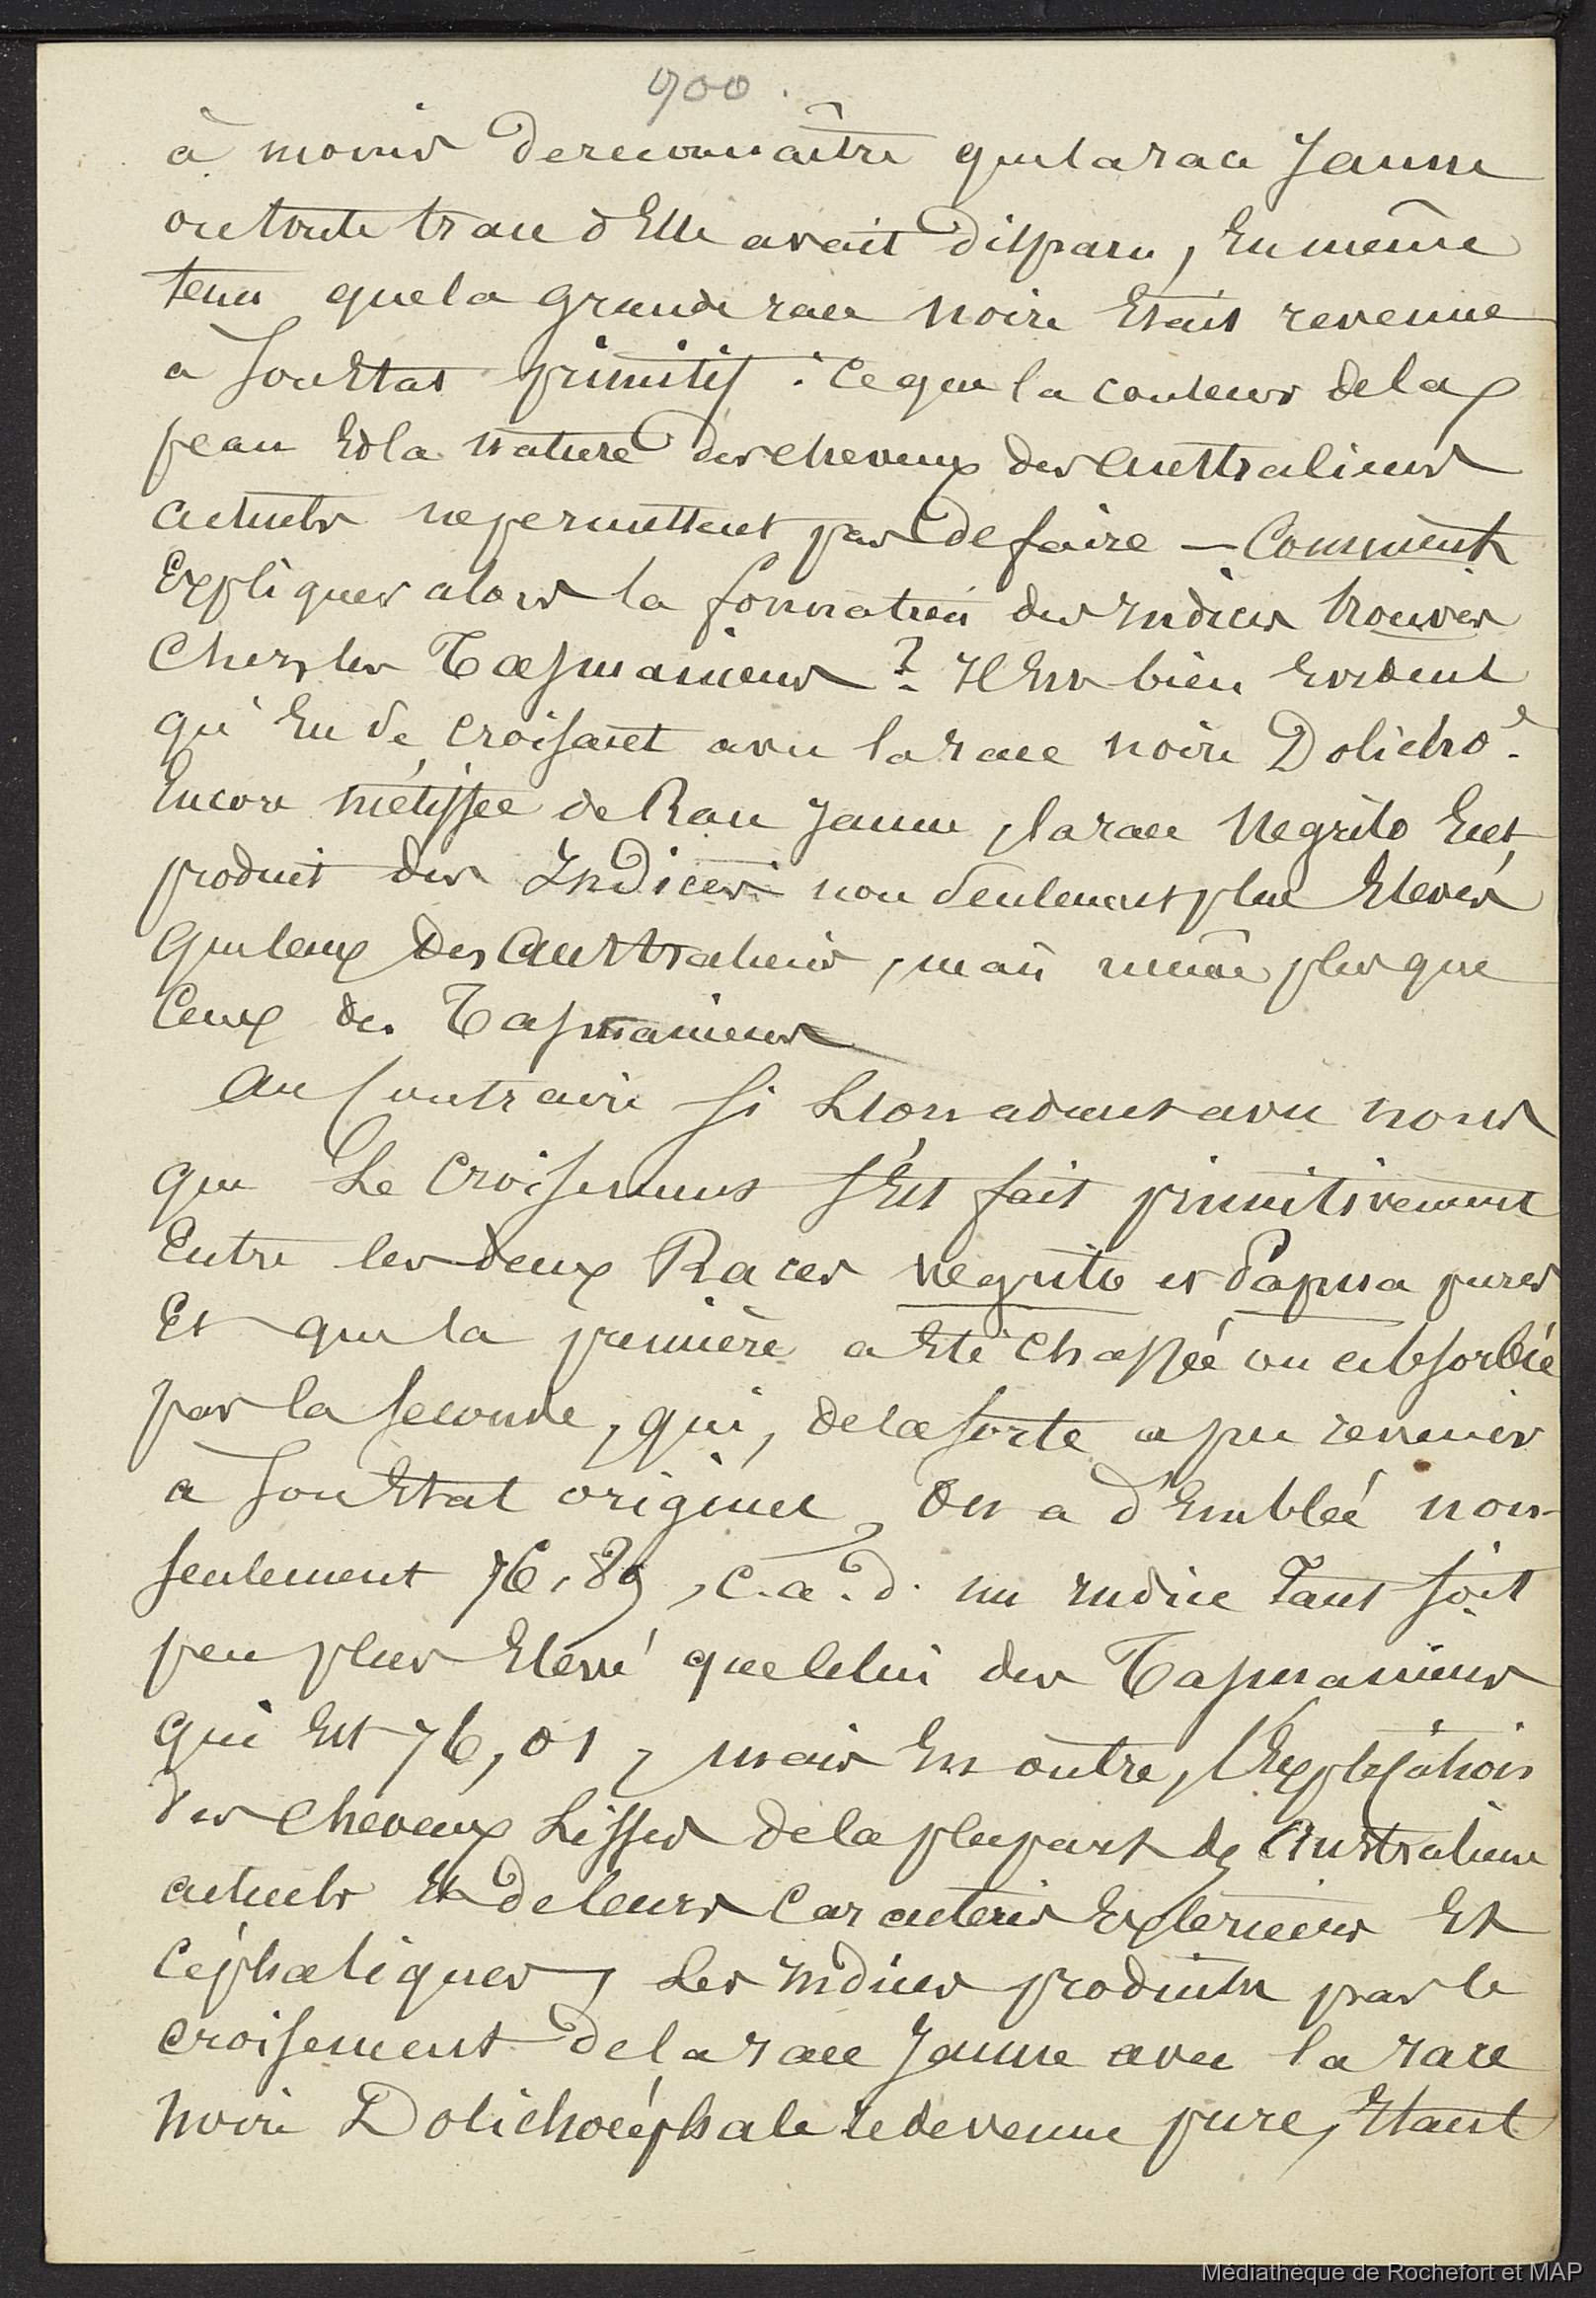 900.
à moins de reconnaître que la race Jaune
ou toute trace d'Elle avait disparu, En même
tems que la grande race noire Etait revenue
a son Etat primitif : ce que la couleur de la
peau Et la nature des cheveux des australiens
actuels ne permettent pas de faire — Comment
Expliquer alors la formation des Indices trouvés
Chez les Tasmaniens ? Il Est bien Evident
qu'En se croisant avec la race noire Dolicho^e.
Encore métissée de Race Jaune, la race Negrito Eut
produit des Indices non seulement plus Elevés
que ceux des australiens, mais même plus que
Ceux des Tasmaniens
Au Contraire si L'on admet avec nous
que Le Croisement s'Est fait primitivement
Entre les deux Races negrito et Papua pures
Et que la première a Eté chassée ou absorbée
par la seconde, qui, de la sorte a pu revenir
à son Etat originel, On a d'Emblée non
seulement 76,89, c. a. d. un indice tant soit
peu plus Elevé que celui des Tasmaniens
qui Est 76,01, mais En outre, l'Explication
des cheveux Lisses de la plupart des Australiens
actuels Et de leurs Caractères Extérieurs Et
Céphaliques, Les Indices produits par le
croisement de la race Jaune avec la race
noire Dolichocéphale redevenue pure, Etant
Médiathèque de Rochefort et MAP